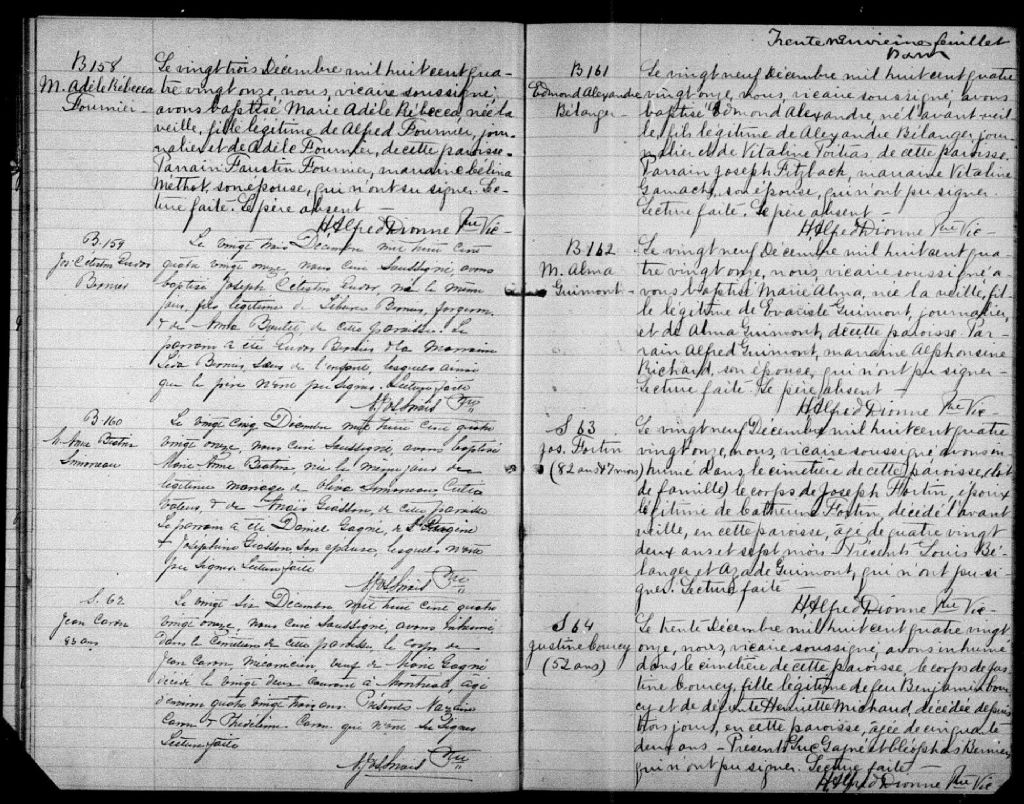 B 158
M. Adèle Rébecca
Fournier
Le vingt trois Décembre mil huit cent qua-
tre vingt onze, nous, vicaire soussigné,
avons baptisé Marie Adèle Rébecca, née la
veille, fille légitime de Alfred Fournier, jour-
nalier et de Adèle Fournier, de cette paroisse.
Parrain Faustin Fournier, marraine Célina
Méthot, son épouse, qui n'ont su signer. Lec-
ture faite. Le père absent
H Alfred Dionne Ptre Vic-
B. 159
Jos. Celestin Eudor
Bernier
Le vingt trois Décembre mil huit cent
quatre vingt onze, nous curé soussigné, avons
baptisé Joseph Celestin Eudor, né le même
jour, fils légitime de Bernier, forgeron
& de Anna de cette paroisse. Le
parrain a été Eudor Bernier & la marraine
Bernier, soeur de l'enfant, lesquels ainsi
que le père n'ont pu signer. Lecture faite
Ptre
B. 160
M. Anne Beatrix
Simoneau
Le vingt cinq Décembre mil huit cent quatre
vingt onze, nous curé soussigné, avons baptisé
Marie Anne Beatrix née le même jour du
légitime mariage de Oliva Simoneau Culti-
vateur, & de Anaïs Giasson, de cette paroisse
Le parrain a été Daniel Gagné, de St Eugène
& Joséphine Giasson, son épouse, lesquels n'ont
pu signer. Lecture faite
Ptre
S. 62
Jean Caron
83 ans
Le vingt six Décembre mil huit cent quatre
vingt onze, nous curé soussigné, avons inhumé
dans le cimetière de cette paroisse, le corps de
Jean Caron, mecanicien, veuf de Marie Gagné
décédé le vingt deux courant à Montreal, agé
d'environ quatre vingt trois ans. Présents Nazaire
Caron & Caron qui n'ont su signer
Lecture faite
Ptre
Trente neuvième feuillet
B 161
Edmond Alexandre
Bélanger
Le vingt neuf Décembre mil huit cent quatre
vingt onze, nous, vicaire soussigné, avons
baptisé Edmond Alexandre, né l'avant veil-
le, fils légitime de Alexandre Bélanger jour-
nalier et de Vitaline Poitras, de cette paroisse.
Parrain Joseph Fitzback, marraine Vitaline
Gamache, son épouse, qui n'ont pu signer.
Lecture faite. Le père absent -
H Alfred Dionne Ptre Vic-
B 162
M. Alma
Guimont
Le vingt neuf Décembre mil huit cent qua-
tre vingt onze, nous, vicaire soussigné a-
vons baptisé Marie Alma, née la veille, fil-
le légitime de Evariste Guimont, journalier,
et de Alma Guimont, de cette paroisse. Par-
rain Alfred Guimont, marraine Alphonsine
Richard, son épouse, qui n'ont pu signer-
Lecture faite. Le père absent
H Alfred Dionne Ptre Vic-
S 63
Jos. Fortin
(82 ans & 7 mois)
Le vingt neuf Décembre mil huit cent quatre
vingt onze, nous, vicaire soussigné avons in-
humé dans le cimetière de cette paroisse, (lot
de famille) le corps de Joseph Fortin, époux
légitime de Catherine Fortin, décédé l'avant
veille, en cette paroisse, âgé de quatre vingt
deux ans et sept mois - Présents Louis Bé-
langer et Azade Guimont, qui n'ont pu si-
gner. Lecture faite
H Alfred Dionne Ptre Vic-
S 64
Justine Courcy
(52 ans)
Le trente Décembre mil huit cent quatre vingt
onze, nous, vicaire soussigné, avons inhumé
dans le cimetière de cette paroisse, le corps de Jus-
tine Courcy, fille légitime de feu Benjamin Cour-
cy et de défunte Henriette Michaud, décédée depuis
trois jours, en cette paroisse, âgée de cinquante
deux ans - Présents Luc Gagné et Cléophas Bernier,
qui n'ont pu signer. Lecture faite -
H Alfred Dionne Ptre Vic